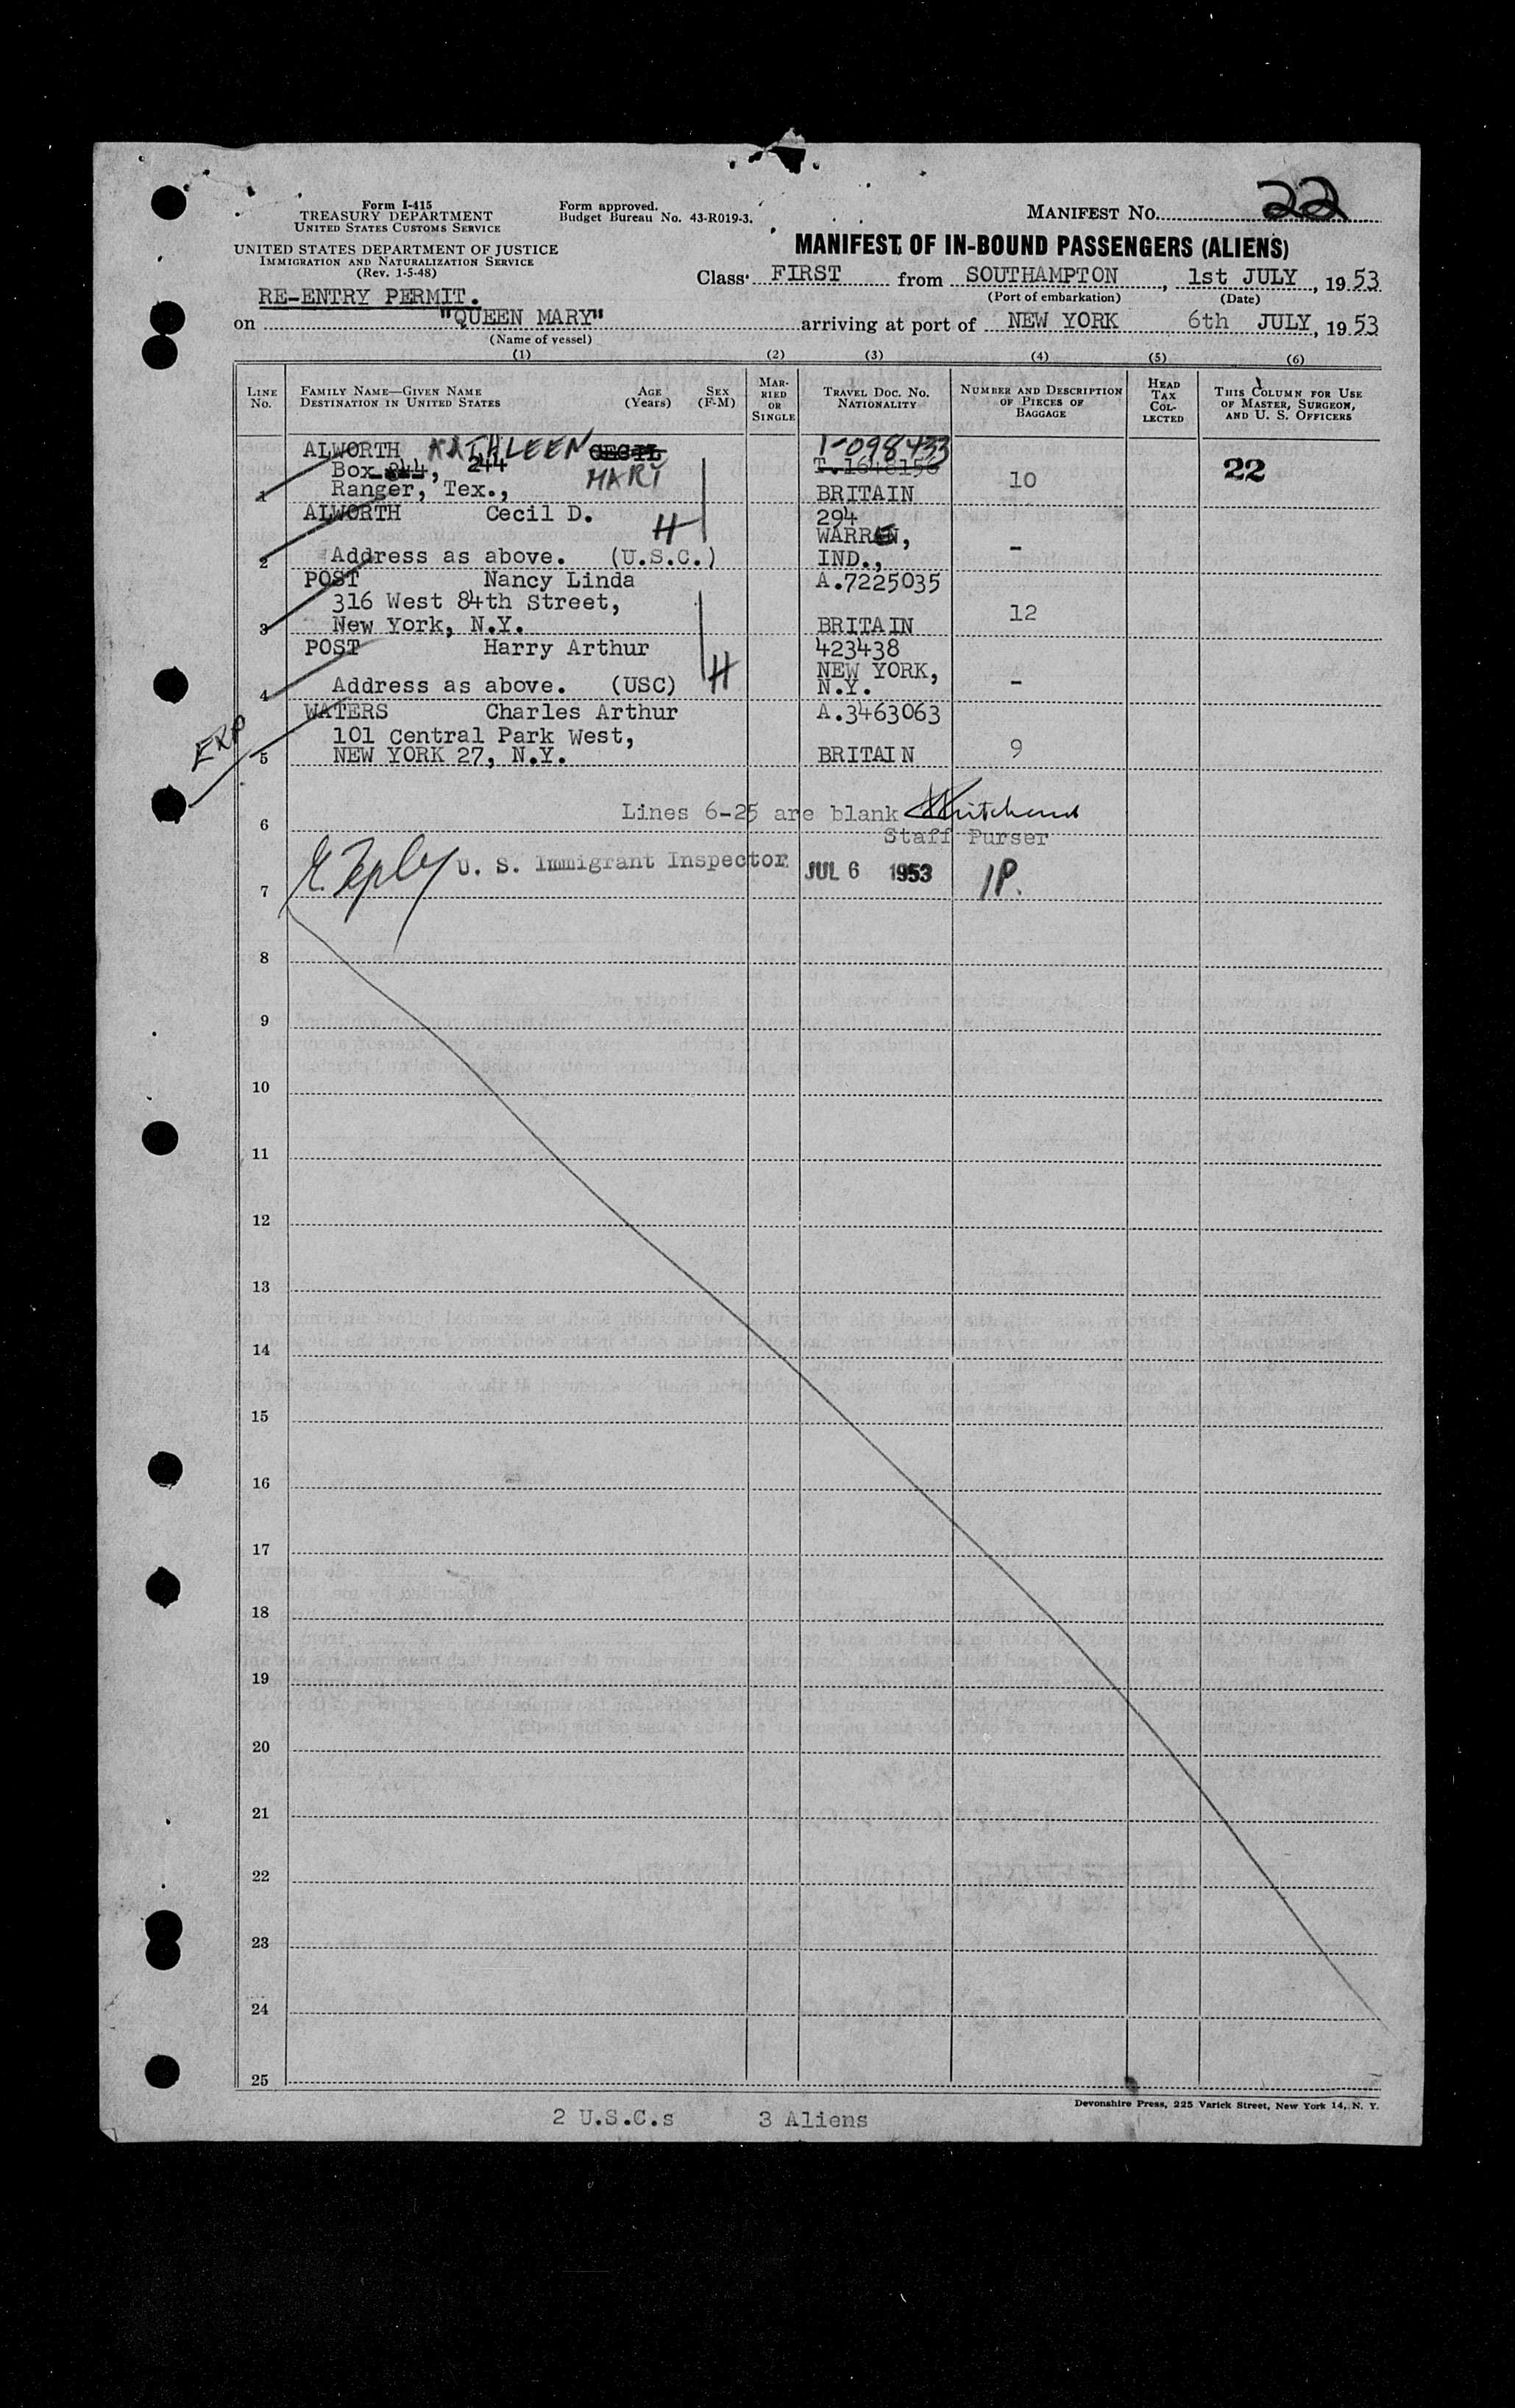 Form I-415
TREASURY DEPARTMENT
UNITED STATES CUSTOMS SERVICE
UNITED STATES DEPARTMENT OF JUSTICE
IMMIGRATION AND NATURALIZATION SERVICE
(Rev. 1-5-48)
Form approved.
Budget Bureau No. 43-R019-3.
MANIFEST No. 22
MANIFEST OF IN-BOUND PASSENGERS (ALIENS)
Class FIRST from SOUTHAMPTON, 1st JULY, 1953
(Port of embarkation) (Date)
RE-ENTRY PERMIT.
on "QUEEN MARY" arriving at port of NEW YORK 6th JULY, 1953
(Name of vessel)
(1) (2) (3) (4) (5) (6)
LINE No.
FAMILY NAME—GIVEN NAME
DESTINATION IN UNITED STATES
AGE (Years)
SEX (F-M)
MARRIED OR SINGLE
TRAVEL DOC. NO.
NATIONALITY
NUMBER AND DESCRIPTION OF PIECES OF BAGGAGE
HEAD TAX COLLECTED
THIS COLUMN FOR USE OF MASTER, SURGEON, AND U. S. OFFICERS
ALWORTH KATHLEEN CECIL 1-098433
Box 844, 244 MARY T.1648156 10 22
1 Ranger, Tex., BRITAIN
ALWORTH Cecil D. H 294
WARREN,
2 Address as above. (U.S.C.) IND., -
POST Nancy Linda A.7225035
316 West 84th Street, 12
3 New York, N.Y. BRITAIN
POST Harry Arthur 423438
H NEW YORK,
4 Address as above. (USC) N.Y. -
WATERS Charles Arthur A.3463063
EXP 101 Central Park West,
5 NEW YORK 27, N.Y. BRITAIN 9
Lines 6-25 are blank
6 Staff Purser
U. S. Immigrant Inspector JUL 6 1953 1P.
7
8
9
10
11
12
13
14
15
16
17
18
19
20
21
22
23
24
25
Devonshire Press, 225 Varick Street, New York 14, N. Y.
2 U.S.C.s 3 Aliens